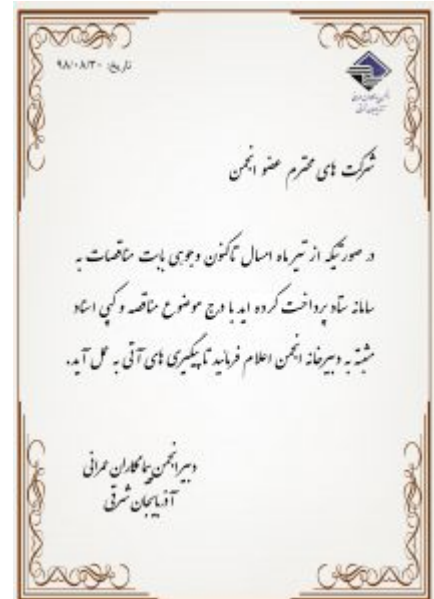 تاریخ: ۹۸/۰۸/۳۰
شرکت های محترم عضو انجمن
در صورتیکه از تیر ماه امسال تاکنون وجوهی بابت مناقصات به
سامانه ستاد پرداخت کرده اید با درج موضوع مناقصه و کپی اسناد
مثبته به دبیرخانه انجمن اعلام فرمائید تا پیگیری های آتی به عمل آید.
دبیر انجمن پیمانکاران عمرانی
آذربایجان شرقی